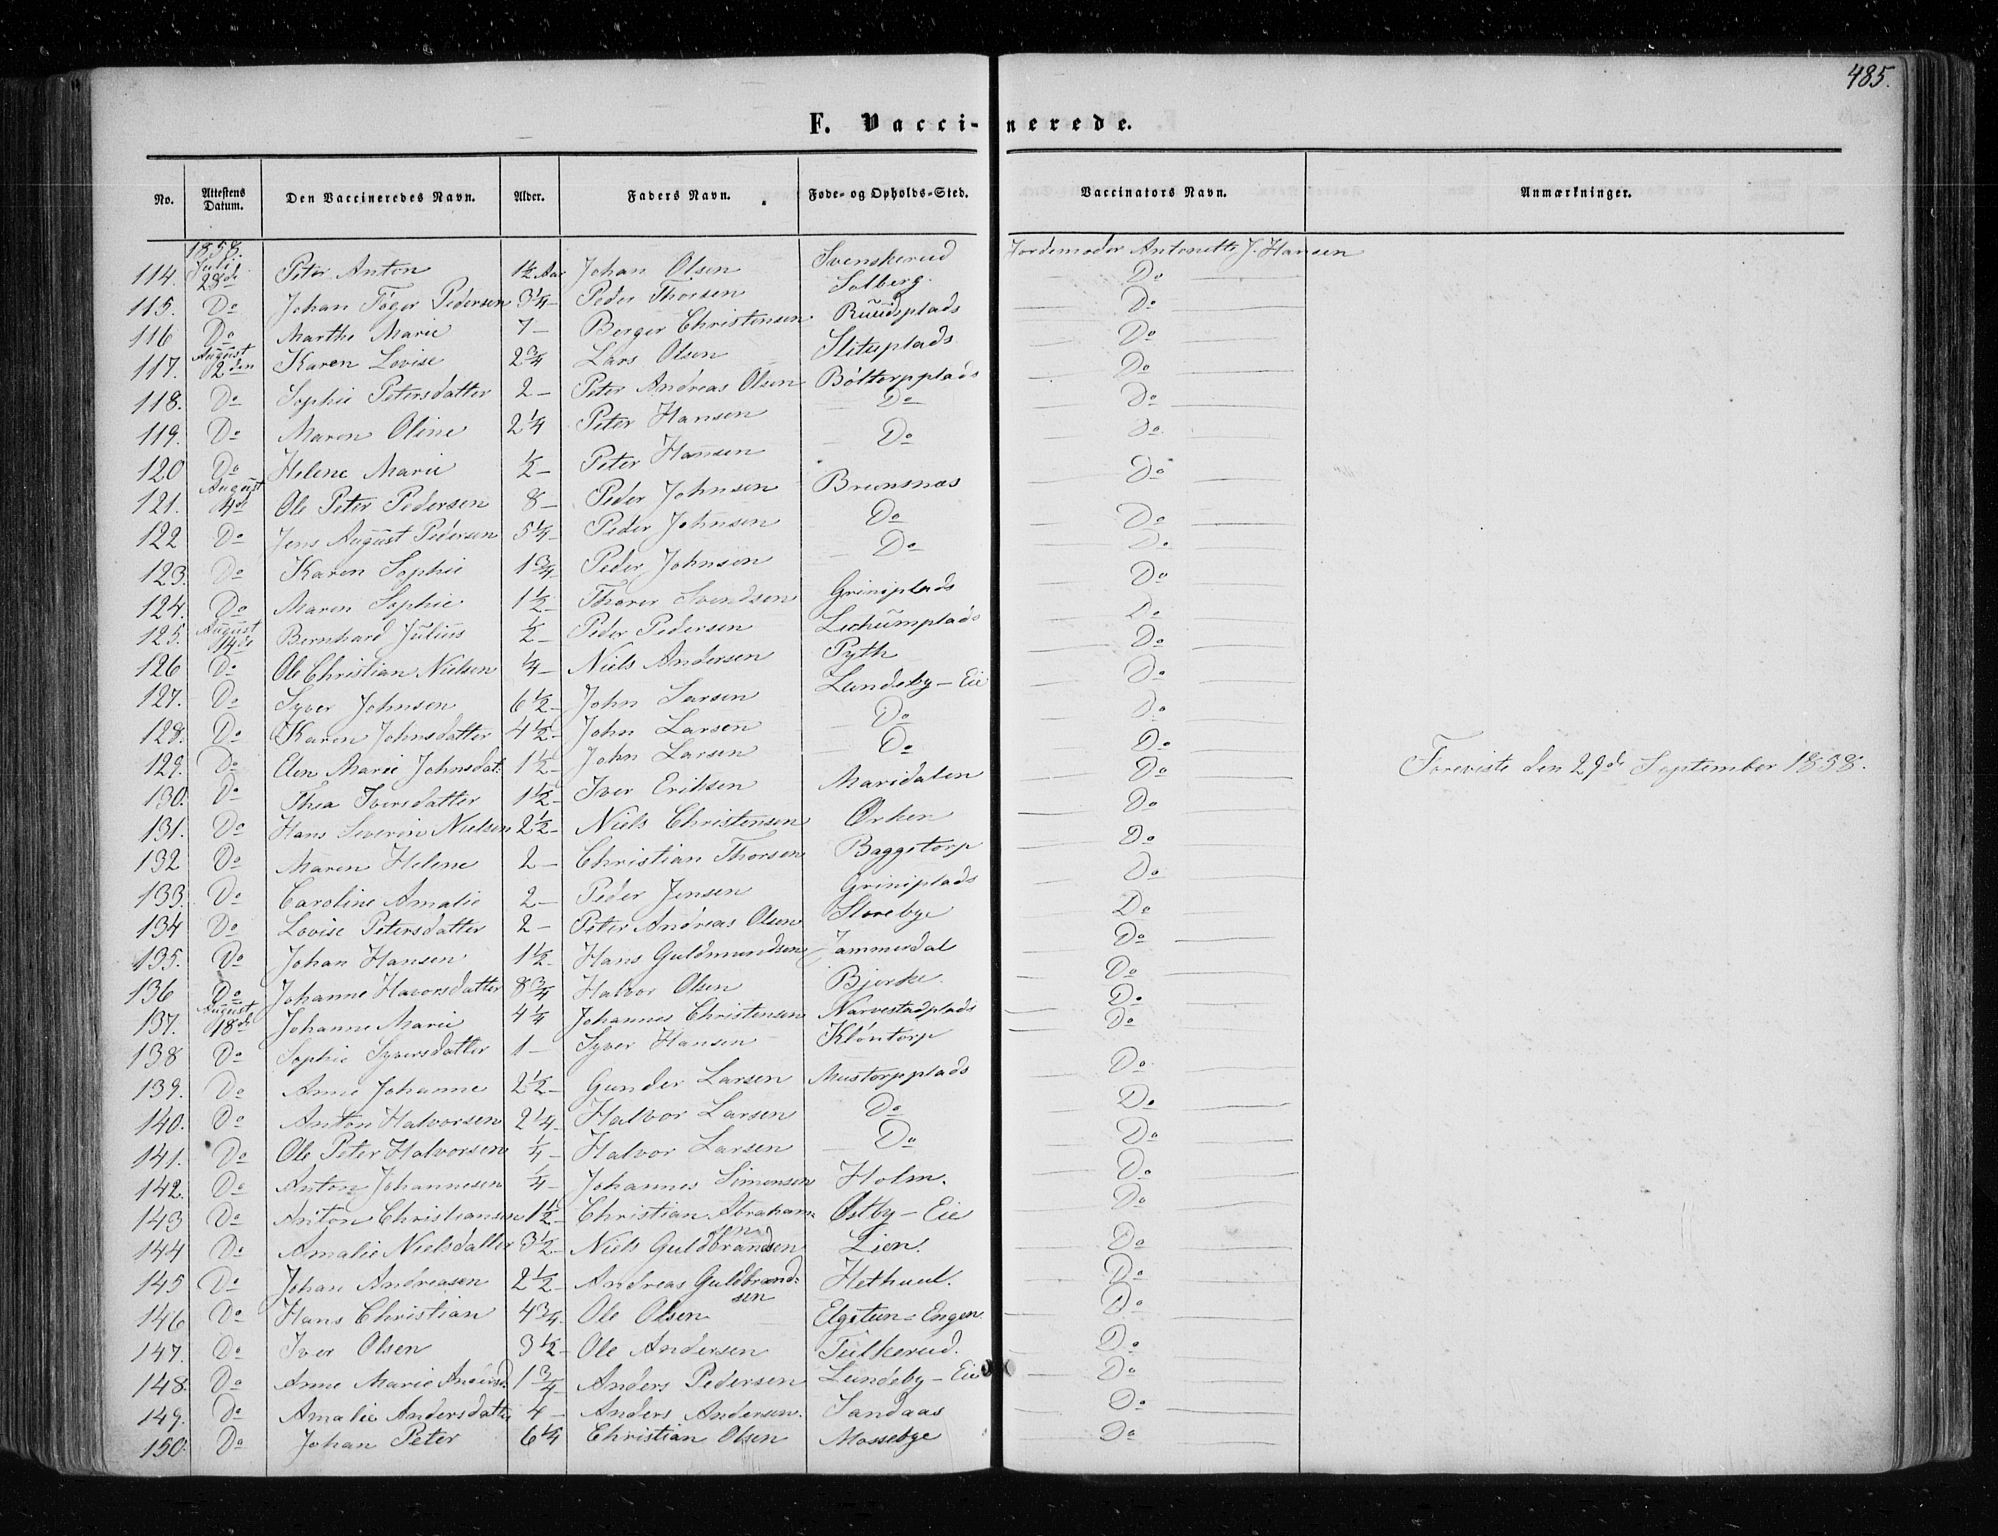 485.
F. Vaccinerede.
No. Attestens Datum. Den Vaccineredes Navn. Alder. Faders Navn. Føde- og Opholds-Sted. Vaccinators Navn. Anmærkninger.
1858.
114. Juli 28de Peter Anton 1½ Aar Johan Olsen Svenskerud Jordemoder Antonette J. Hansen
115. Do Johan Føger Pedersen 3¼ Peder Thorsen Solberg. Do
116 Do Marthe Marie 7 – Berger Christensen Ruudsplads Do
117. August 2den Karen Lovise 2¾ Lars Olsen Slituplads Do
118. Do Sophie Petersdatter 2 – Peter Andreas Olsen Böltorpplads Do
119. Do Maren Oline 2¼ Peter Hansen Do Do
120 Do Helene Marie ½ – Peter Hansen Do Do
121. August 4de Ole Peter Pedersen 8 – Peder Johnsen Brunsnæs Do
122 Do Jens August Pedersen 5¼ – Peder Johnsen Do Do
123. Do Karen Sophie 1¾ Peder Johnsen Do Do
124. Do Maren Sophie 1½ Thorer Svendsen Griniplads Do
125. August 14de Bernhard Julius ½ – Peder Pedersen Lechumplads Do
126 Do Ole Christian Nielsen ¼ – Niels Andersen Pyth Do
127. Do Syver Johnsen 6½ – John Larsen Lundeby – Eie Do
128. Do Karen Johnsdatter 4½ – John Larsen Do Do
129. Do Elen Marie Johnsdat. 1½ – John Larsen Do Do
130. Do Thea Iversdatter 1½ – Iver Eriksen Maridalen Do
131. Do Hans Severin Nielsen 2½ – Niels Christensen Ørken Do
132 Do Maren Helene 2 – Christian Thorsen Baggetorp Do
133. Do Caroline Amalie 2 – Peder Jensen Griniplads Do
134 Do Lovise Petersdatter 2 – Peter Andreas Olsen Storebye Do
135. Do Johan Hansen 1½ Hans Guldmundsen Jammerdal Do
136 Do Johanne Havorsdatter 8¾ Halvor Olsen Bjerke. Do
137. August 18de Johanne Marie 4¼ Johannes Christensen Narvestadplads Do
138 Do Sophie Syversdatter 1 – Syver Hansen Klöntorp Do
139. Do Anne Johanne 2½ – Gunder Larsen Mustorpplads Do
140. Do Anton Halvorsen 2¼ Halvor Larsen Do Do
141. Do Ole Peter Halvorsen ¼ – Halvor Larsen Do Do
142. Do Anton Johannesen ¼ – Johannes Simensen Holm. Do
143 Do Anton Christiansen 1½ – Christian Abraham- Østby – Eie Do
sen
144 Do Amalie Nielsdatter 3½ – Niels Guldbrandsen Lien. Do
145 Do Johan Andreasen 2½ – Andreas Guldbrand- Do
sen
146 Do Hans Christian 4¾ Ole Olsen Elgetun = Engen. Do
147. Do Iver Olsen 3½ – Ole Andersen Tulkerud. Do
148. Do Anne Marie Andersd. 1¾ Anders Pedersen Lundeby – Eie Do
149. Do Amalie Andersdatter 4 – Anders Andersen. Sandaas Do
150. Do Johan Peter 6¼ Christian Olsen Mossebye Do
Foreviste den 29de September 1858.